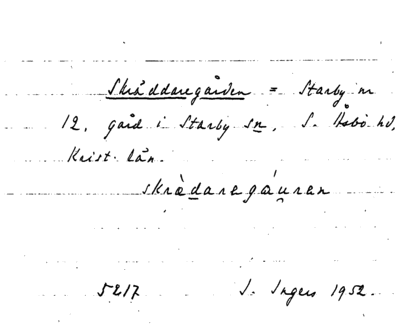 Skräddaregården = Starby nr
12, gård i Starby sn, S. Åsbo hd,
Krist. län.
skrädaregáu̯ran
5217 I. Ingers 1952.